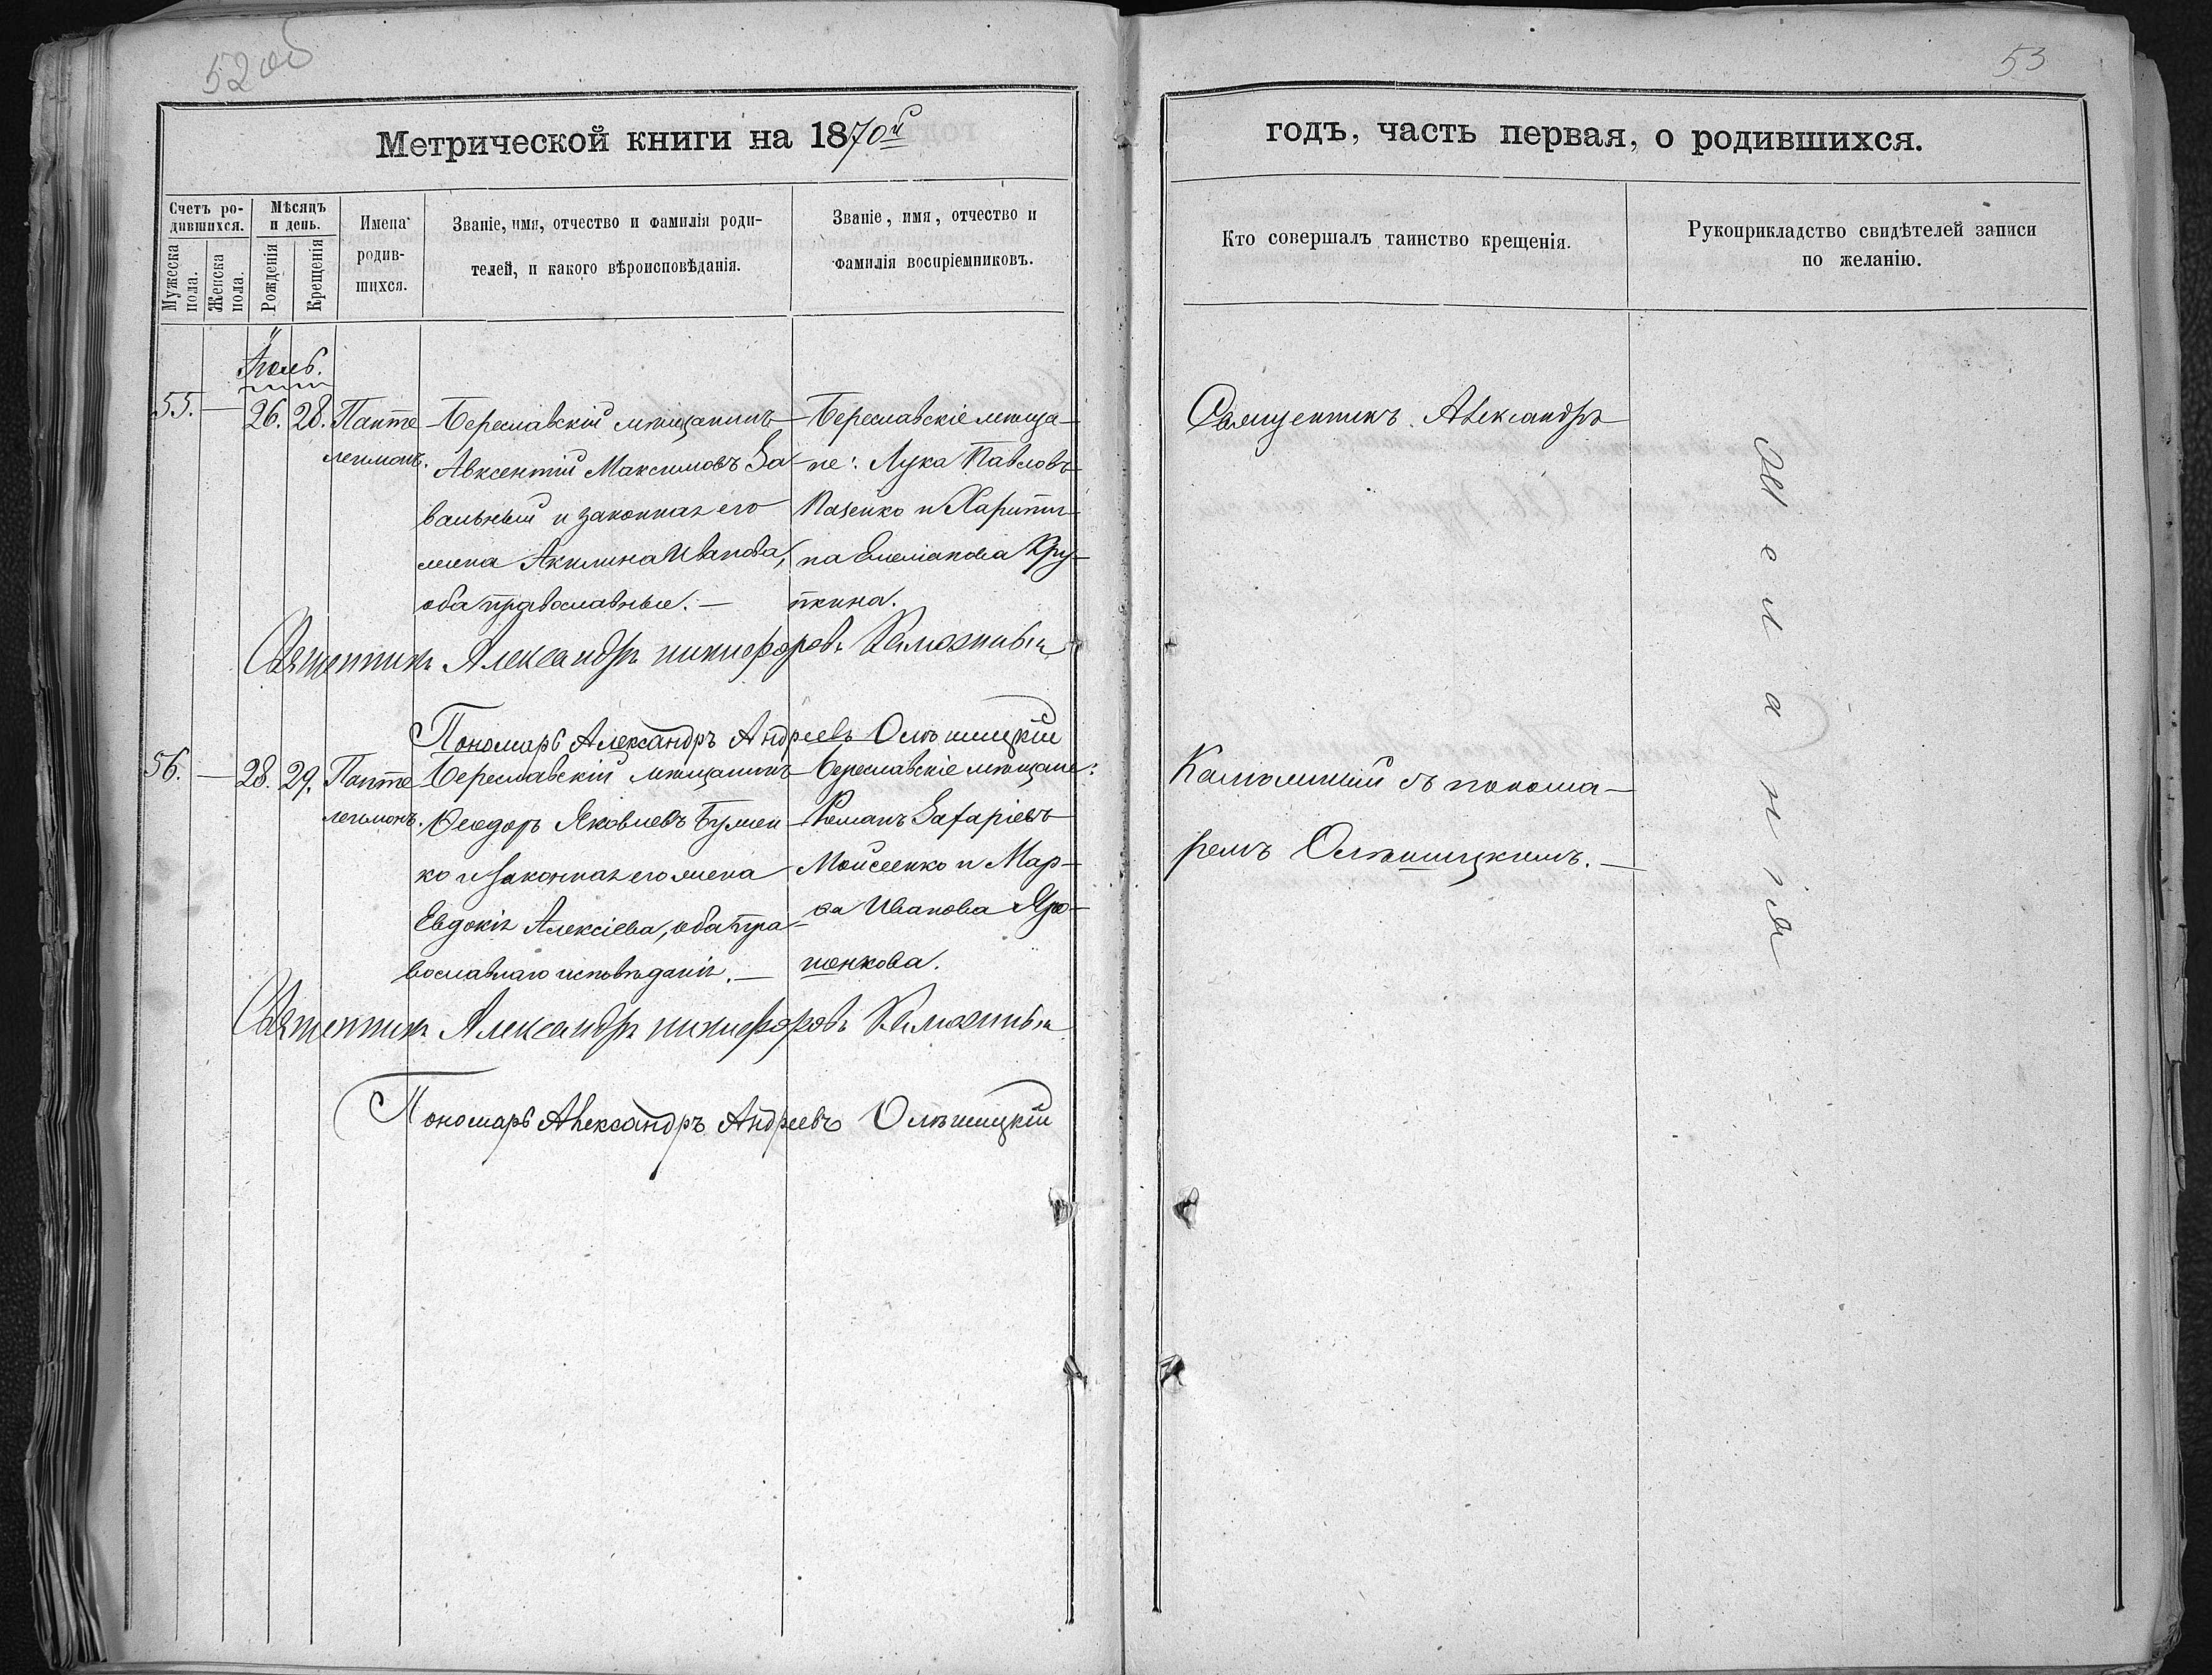 52 об
53
Метрической книги на 1870й
годъ, часть первая, о родившихся.
Счетъ ро-
дившихся.
Мужеска
пола.
Женска
пола.
Мѣсяцъ
и день.
Рожденія
Крещенія
Имена
родив-
шихся.
Званіе, имя, отчество и фамилія роди-
телей, и какого вѣроисповѣданія.
Званіе, имя, отчество и
фамилія воспріемниковъ.
Кто совершалъ таинство крещенія.
Рукоприкладство свидѣтелей записи
по желанію.
Іюль.
55. — 26. 28. Панте
леимонъ.
Бериславскій мѣщанинъ
Авксентій Максимовъ За
вальный и законная его
жена Акилина Иванова,
оба православные. —
Бериславскіе мѣща-
не: Лука Павловъ
и Харити-
на Емеліанова Кру-
пкина.
Священникъ Александръ
Священникъ Александръ никифоровъ
Пономарь Александръ Андреевъ Олѣшицкій
56. — 28. 29. Панте
леимонъ.
Бериславскій мѣщанинъ
Ѳеодоръ Яковлевъ Бумен
ко и законная его жена
Евдокія Алексіева, оба пра-
вославнаго исповѣданія. —
Бериславскіе мѣщане:
Романъ Захаріевъ
Моисеенко и Мар-
ѳа Иванова Яро-
шенкова.
съ понома-
ремъ Олѣшицкимъ. —
Священникъ Александръ никифоровъ
Пономарь Александръ Андреевъ Олѣшицкій
Желанія